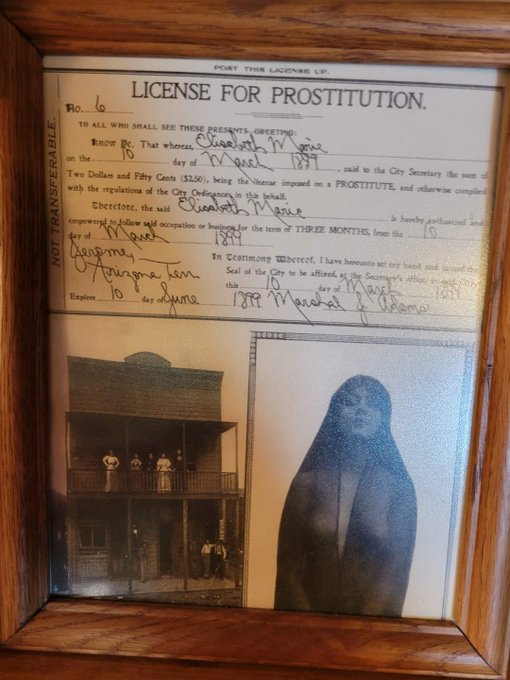 POST THIS LICENSE UP.
LICENSE FOR PROSTITUTION.
No. 6
TO ALL WHO SHALL SEE THESE PRESENTS, GREETING:
Know Ye, That whereas, Elisabeth Marie
on the 10 day of March 1899, paid to the City Secretary the sum of
Two Dollars and Fifty Cents ($2.50), being the license imposed on a PROSTITUTE, and otherwise complied
with the regulations of the City Ordinances in this behalf.
Therefore, the said Elisabeth Marie is hereby authorized and
empowered to follow said occupation or business for the term of THREE MONTHS, from the 10
day of March 1899
Jerome,
Arizona Terr
In Testimony Whereof, I have hereunto set my hand and caused the
Seal of the City to be affixed, at the Secretary's office, in said City
this 10 day of March 1899
Expires 10 day of June 1899 Marshal J Adams
NOT TRANSFERABLE.